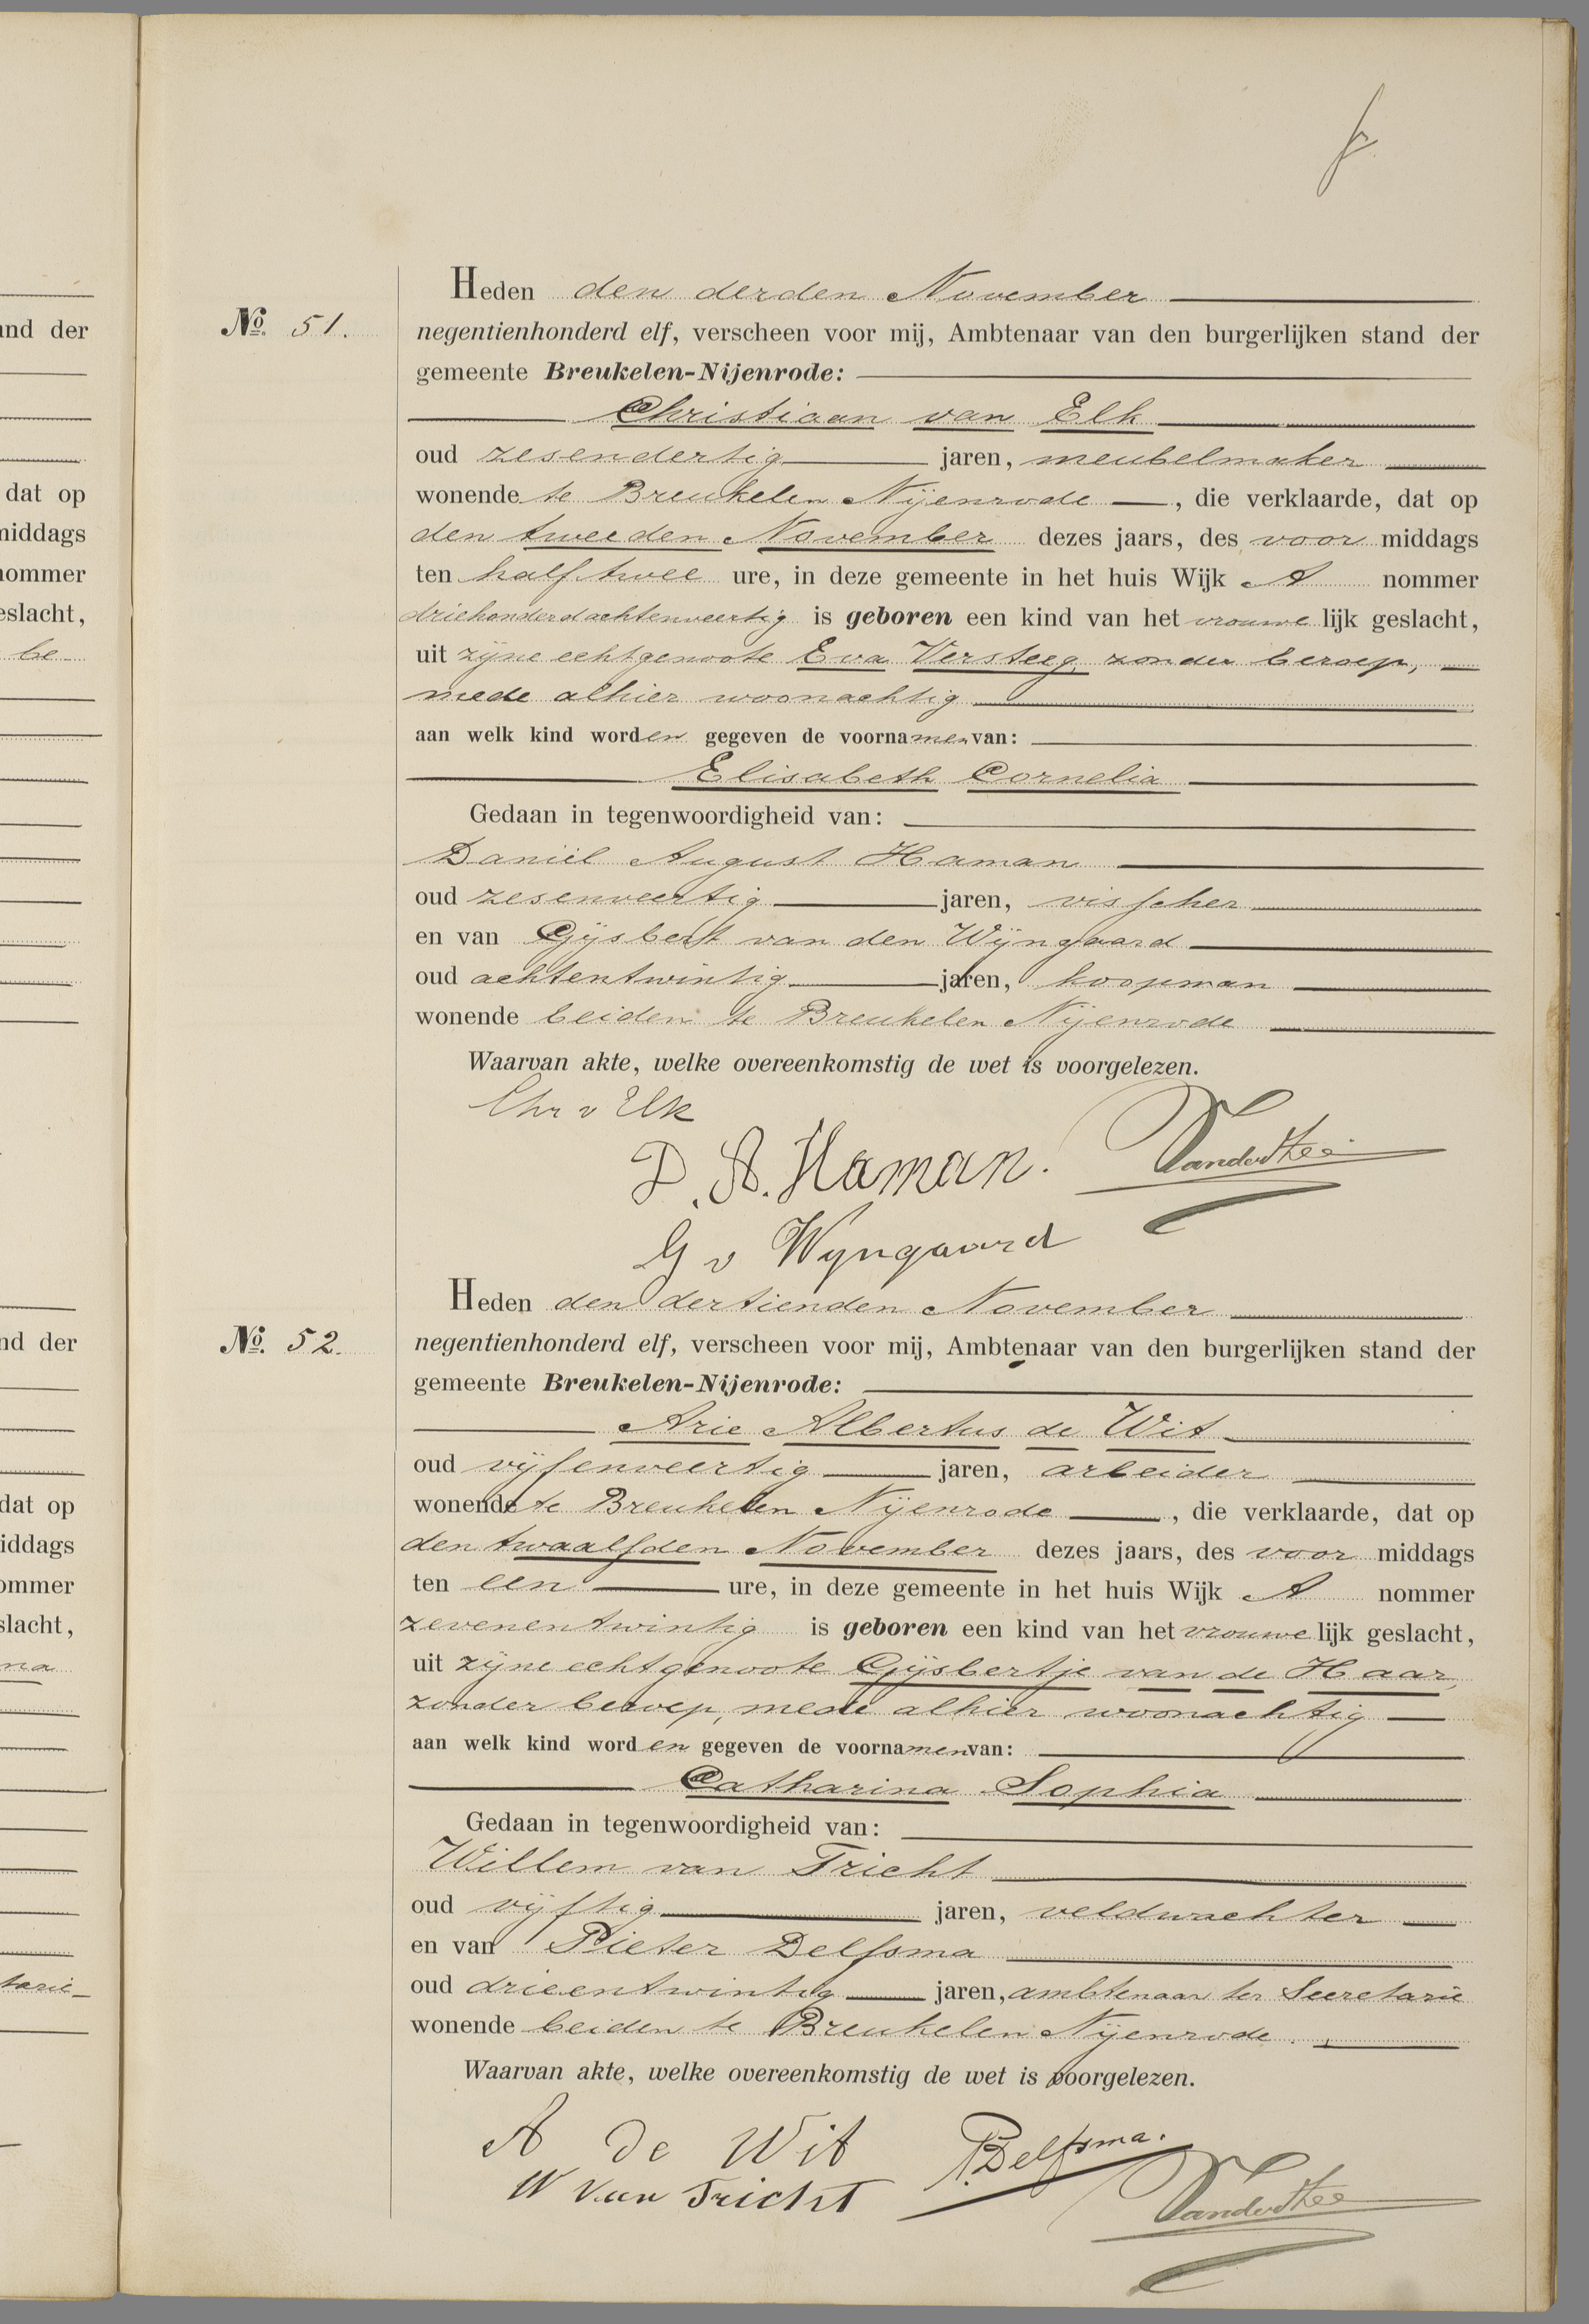 and der
dat op
middags
nommer
eslacht,
be
nd der
dat op
iddags
ommer
slacht,
na
tarie
No. 51.
Heden den derden November
negentienhonderd elf, verscheen voor mij, Ambtenaar van den burgerlijken stand der
gemeente Breukelen-Nijenrode:
Christiaan van Elk
oud zesendertig jaren, meubelmaker
wonende te Breukelen Nijenrode, die verklaarde, dat op
den tweeden November dezes jaars, des voor middags
ten half twee ure, in deze gemeente in het huis Wijk A nommer
driehonderdachtenveertig is geboren een kind van het vrouwelijk geslacht,
uit zijne echtgenoote Eva Versteeg, zonder beroep,
mede alhier woonachtig
aan welk kind worden gegeven de voornamen van:
Elisabeth Cornelia
Gedaan in tegenwoordigheid van:
Daniël August Haman
oud zesenveertig jaren, visscher
en van Gijsbert van den Wijngaard
oud achtentwintig jaren, koopman
wonende beiden te Breukelen Nijenrode
Waarvan akte, welke overeenkomstig de wet is voorgelezen.
Chr v Elk
D. A. Haman.
G v Wyngaard
No. 52.
Heden den dertienden November
negentienhonderd elf, verscheen voor mij, Ambtenaar van den burgerlijken stand der
gemeente Breukelen-Nijenrode:
Arie Albertus de Wit
oud vijfenveertig jaren, arbeider
wonende te Breukelen Nijenrode, die verklaarde, dat op
den twaalfden November dezes jaars, des voor middags
ten een ure, in deze gemeente in het huis Wijk A nommer
zevenentwintig is geboren een kind van het vrouwelijk geslacht,
uit zijne echtgenoote Gijsbertje van de Haar,
zonder beroep, mede alhier woonachtig
aan welk kind worden gegeven de voornamen van:
Catharina Sophia
Gedaan in tegenwoordigheid van:
Willem van Tricht
oud vijftig jaren, veldwachter
en van Pieter Delfsma
oud drieentwintig jaren, ambtenaar ter Secretarie
wonende beiden te Breukelen Nijenrode.
Waarvan akte, welke overeenkomstig de wet is voorgelezen.
A de Wit P. Delfsma.
W Van Tricht